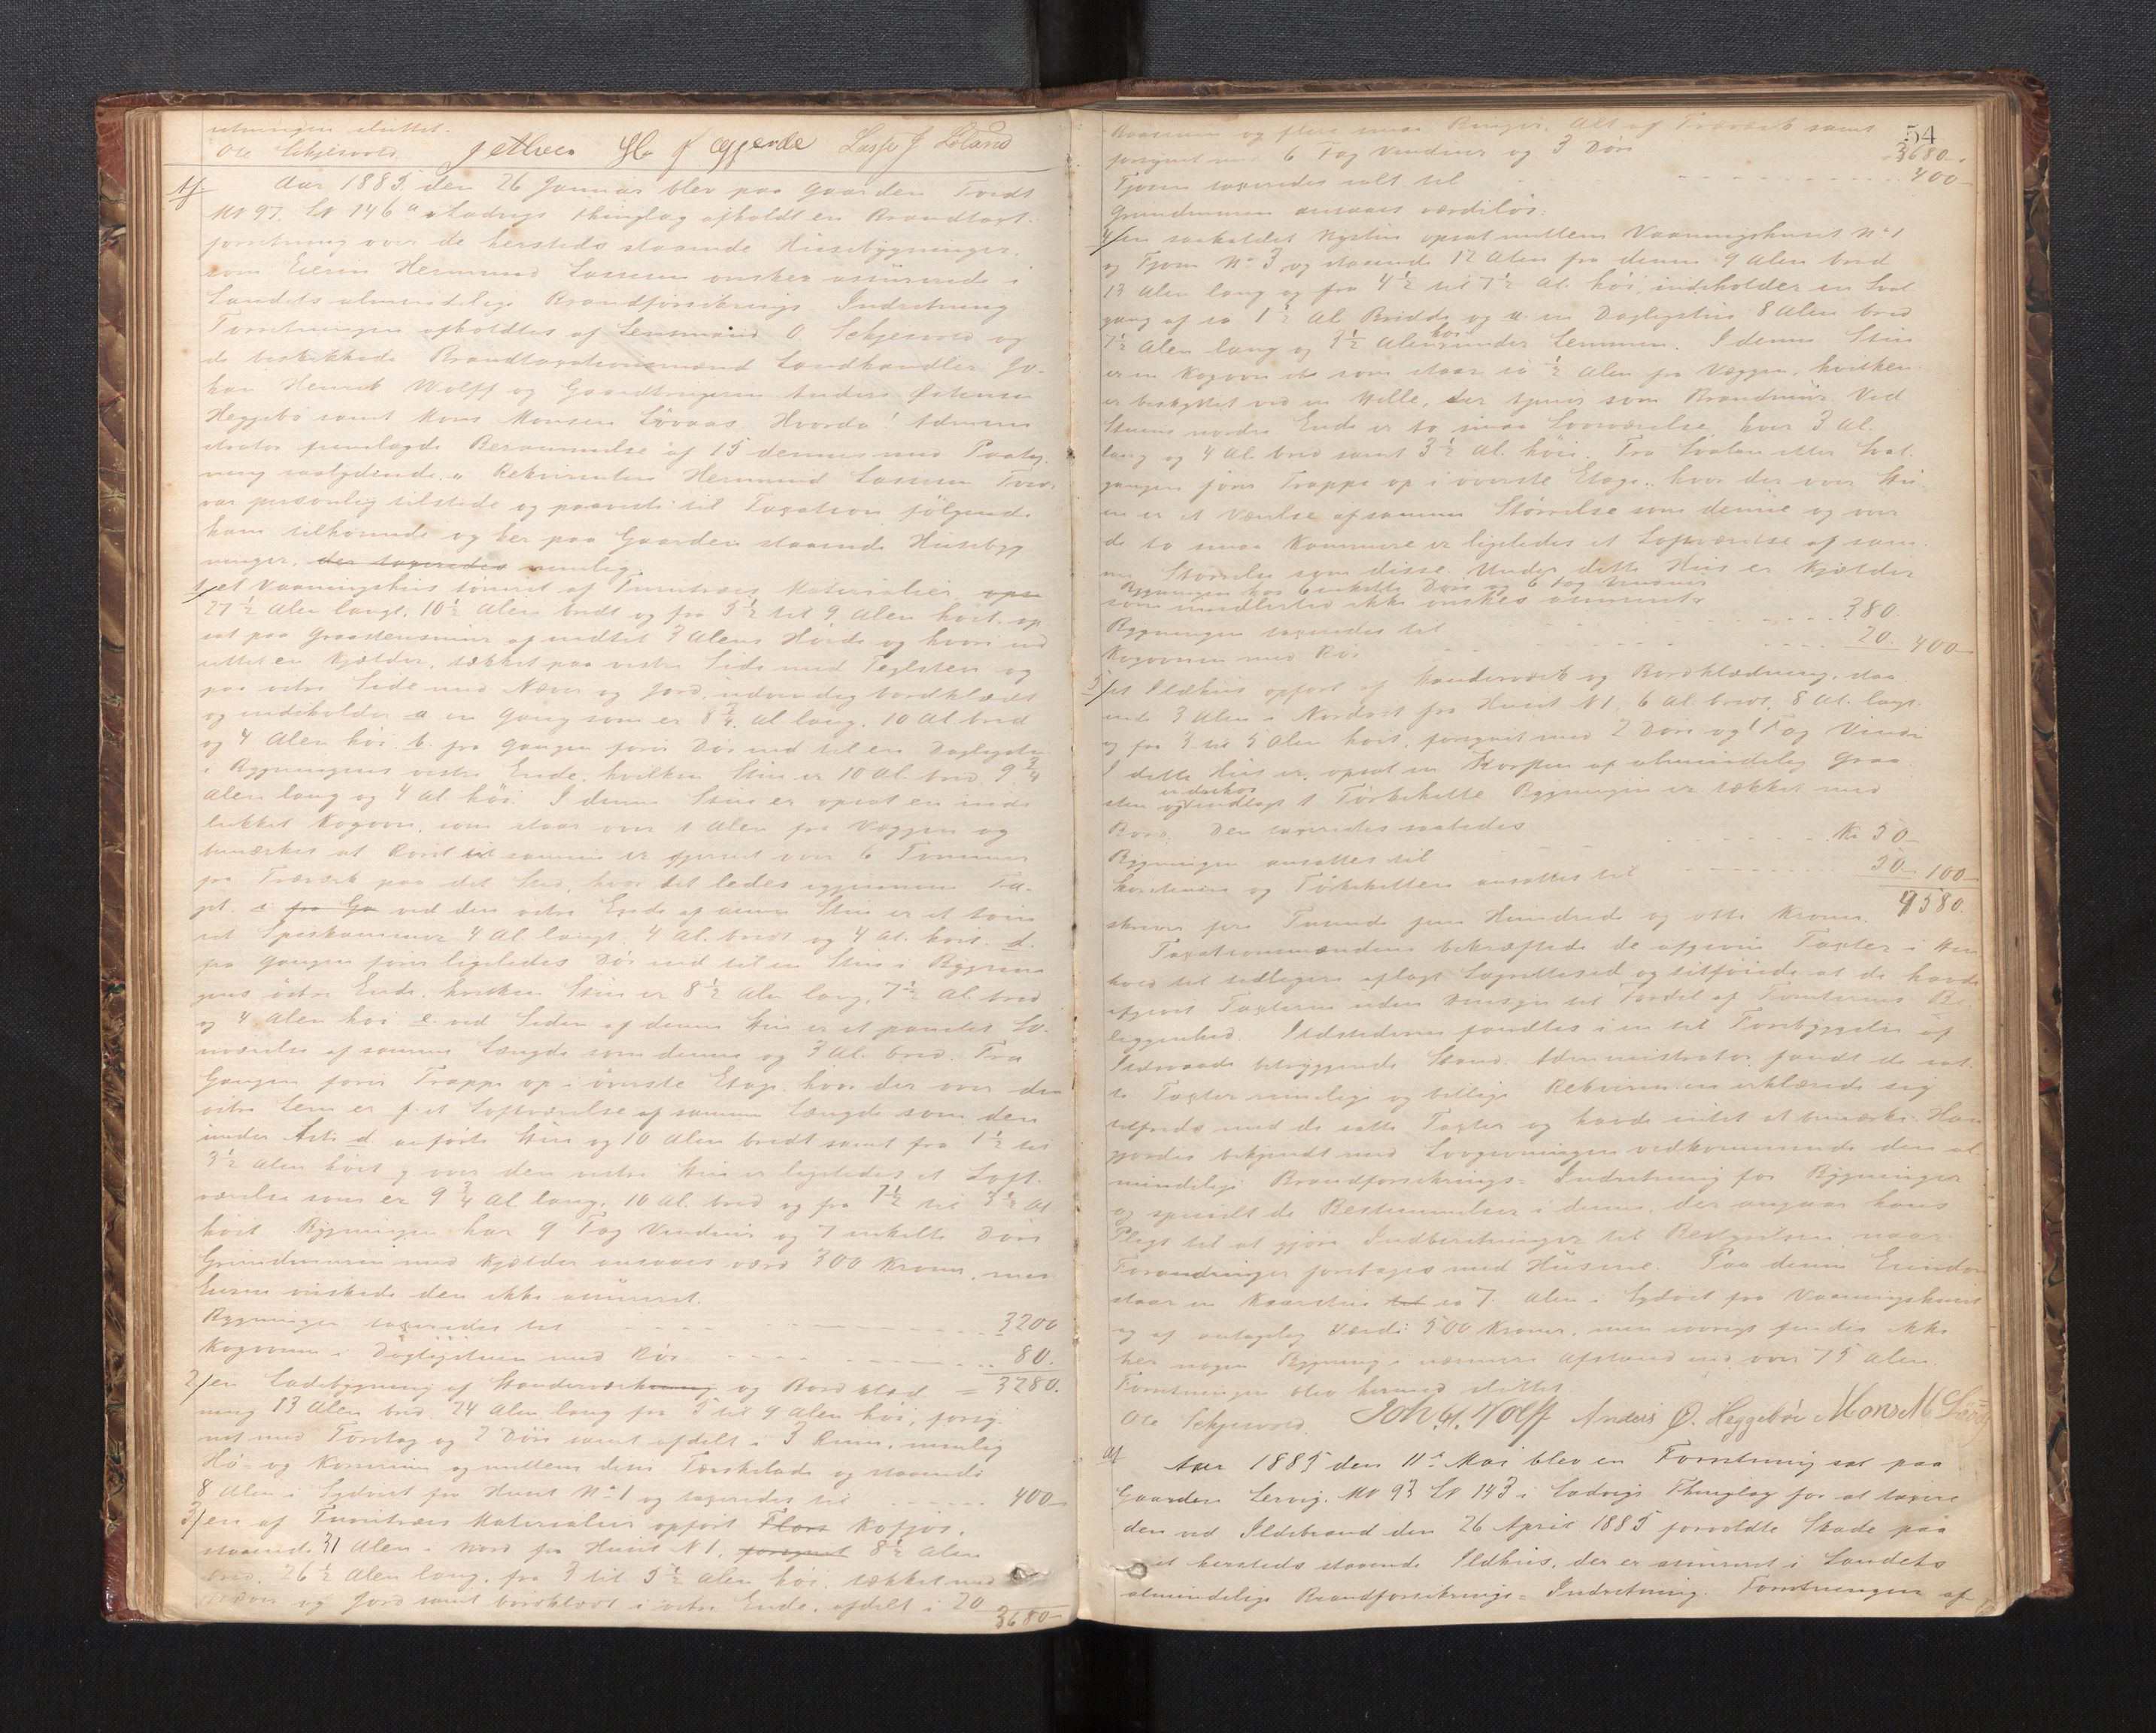 retningen sluttet.
Ole Schjesvold. Lasse J Løland
Af
Aar 1885 den 26 Januar blev paa Gaarden Tredt
M N 97. L N 146 a Ladvigs Thinglag afholdt en Brandtaxt-
forretning over de hersteds staaende Huusebygninger
som Eieren Hermund Lassesen ønsker assureret i
Landets almindelige Brandforsikrings Indretning
Forretningen afholdtes af Lensmand O. Schjesvold og
de beskikkede Brandtaxationsmænd Landhandler Jo-
han Henrik Wolff og Gaardbrugerne Anders Østensen
Heggebø samt Mons Monsen Løvaas. Hvorda! Admini
strator fremlagde Berammelse af 15 dennes med Paateg
ning saalydende. " Rekvirenten Hermund Lassesen Tred
var personlig tilstede og paaviste til Taxation følgende
ham tilhørende og her paa Gaarden staaende Husebyg
ninger, der taxeredes nemlig:
1/ et Vaaningshus tømret af Furutræes Materialier, op
27 1/2 Alen langt, 10 1/2 Alen bredt og fra 5 1/2 til 9 Alen høit. op
sat paa Graastensmur af indtil 3 Alens Høide og hvori ind
rettet en Kjælder, tækket paa vestre Side med Teglsten og
paa østre Side med Næver og Jord, udvendig bordklædt
og indeholder a en Gang som er 8 3/4 Al lang, 10 Al. bred
og 4 Alen høi. b. fra Gangen fører Dør ind til en Dagligstue
i Bygningens vestre Ende, hvilken Stue er 10 Al. bred, 9 3/4
Alen lang og 4 Al høi. I denne Stue er opsat en inde
lukket Kogovn, som staar over 1 Alen fra Væggen og
bemærkes at Røret til samme er fjernet over 6 Tommer
fra Træværk paa det Sted, hvor det ledes igjennem Ta-
get. c fra Ga ved den østre Ende af denne Stue er et tøm
ret Speskammer 4 Al. langt, 4 Al. bredt og 4 Al. høit. d.
fra Gangen fører ligeledes Dør ind til en Stue i Bygnin
gens østre Ende, hvilken Stue er 8 1/2 Alen lang, 7 1/2 Al. bred
og 4 Alen høi e. ved Siden af denne Stue er et panelet So-
værelse af samme Længde som denne og 3 Al. bred. Fra
Gangen fører Trappe op i øverste Etage, hvor der over den
østre Lem er f. et Loftværelse af samme Længde som den
under Litr. d. anførte Stue og 10 Alen bredt samt fra 1 1/2 til
3 1/2 Alen høit g. over den vestre Stue er ligeledes et Loft-
værelse som er 9 3/4 Al. lang, 10 Al. bred og fra 1 1/2 til 3 1/2 Al
høit Bygningen har 9 Fag Vinduer og 7 enkelte Døre
Grundmuren med Kjælder ansaaes værd 300 Kroner, men
Eieren ønskede den ikke assureret.
Bygningen taxeredes til 3200
Kogovnen i Dagligstuen med Rør 80.
2/ en Ladebygning af Standerværk og Bordklæd = 3280.
ning 13 Alen bred, 24 Alen lang fra 5 til 9 Alen høi, forsy-
net med Tørvtag og 2 Døre samt afdelt i 3 Rum, nemlig
Hø- og Kornrum og mellem dem Tærskelade og staaende
8 Alen i Sydvest fra Huset No 1 og taxeredes til 400-
3/ en af Furutræes Materialier opført Flors Kofjøs,
staaende 31 Alen i Nord fra Huset N 1, forsynet 8 1/2 Alen
bred, 26 1/2 Alen lang, fra 3 til 5 1/2 Alen høi, tækket med
Næver og Jord samt bordklædt i østre Ende, afdelt i 20
3680-
54
Baaserum og flere smaa Binger. Alt af Træværk samt
forsynet med 6 Fag Vinduer og 3 Døre 3680-
Fjøsen taxeredes alt til 400-
Grundmuren ansaaes værdiløs.
4/ en saakaldet Nystue opsat mellem Vaaningshuset No 1
og Fjøsen No 3 og staaende 12 Alen fra denne 9 Alen bred
13 Alen lang og fra 4 1/2 til 7 1/2 Al. høi, indeholder en Sval
gang af ca 1 1/2 Al. Bredde og a en Dagligstue 8 Alen bred
7 1/2 Alen lang og 3 1/2 Alen høi under Lemmen. I denne Stue
er en Kogovn ds som staar ca 1/2 Alen fra Væggen, hvilken
er beskyttet ved en Helle, der tjener som Brandmur. Ved
Stuens nordre Ende er to smaa Soværelse, hver 3 Al.
lang og 4 Al. bred samt 3 1/2 Al. høie. Fra Svalen eller Sval-
gangen fører Trappe op i øverste Etage, hvor der over Stu
en er et Værelse af samme Størrelse som denne og over
de to smaa Kammere er ligeledes et Loftværelse af sam-
me Størrelse som disse. Under dette Hus er Kjælder
Bygningen har 6 enkelte Døre og 6 Fag Vinduer
som imidlertid ikke ønskes assureret.
Bygningen taxeredes til 380.
Kogovnen med Rør 20. 400-
5/ et Ildhus opført af Standerværk og Bordklædning, staa-
ende 3 Alen i Nordost fra Huset N 1, 6 Al. bredt, 8 Al. langt
og fra 3 til 5 Alen høit, forsynet med 2 Døre og 1 Fag Vindu
I dette Hus er opsat en Skorsten af almindelig Graa
sten og endvidere indlagt 1 Tørkehelle Bygningen er tækket med
Bord. Den taxeredes saaledes
Bygningen ansattes til Kr 50-
Skorstenen og Tørkehellen ansattes til 50- 100-
4580.
skriver fire Tusinde fem Hundrede og otti Kroner.
Taxationsmændene bekræftede de afgivne Taxter i Hen
hold til tidligere aflagt Lagrettesed og tilføiede at de havde
afgivet Taxterne uden Hensyn til Fordel af Tomternes Be-
liggenhed. Ildstederne fandtes i en til Forebyggelse af
Ildsvaade betryggende Stand. Administrator fandt de sat-
te Taxter rimelige og billige. Rekvirenten erklærede sig
tilfreds med de satte Taxter og havde intet at bemærke. Han
gjordes bekjendt med Lovgivningen vedkommende den al-
mindelige Brandforsikrings- Indretning for Bygninger
og specielt de Bestemmelser i denne, der angaar hans
Pligt til at gjøre Indberetninger til Bestyrelsen naar
Forandringer foretages med Husene. Paa denne Eiendom
staar en Kvernstue til ca 7 Alen i Sydvest fra Vaaningshuset
og af antagelig Værdi 500 Kroner, men øvrigt findes ikke
her nogen Bygning i nærmere Afstand end over 75 Alen
Forretningen blev hermed sluttet
Ole Schjesvold. Joh. H. Wolff Anders Ø. Heggebøe Mons M Løvaas
Af
Aar 1885 den 11te Mai blev en Forretning sat paa
Gaarden Lervig. M N 93 L N 143 i Ladvigs Thinglag for at taxere
den ved Ildebrand den 26 April 1885 forvoldte Skade paa
et hersteds staaende Ildhus, der er assureret i Landets
almindelige Brandforsikrings- Indretning. Forretningen af-